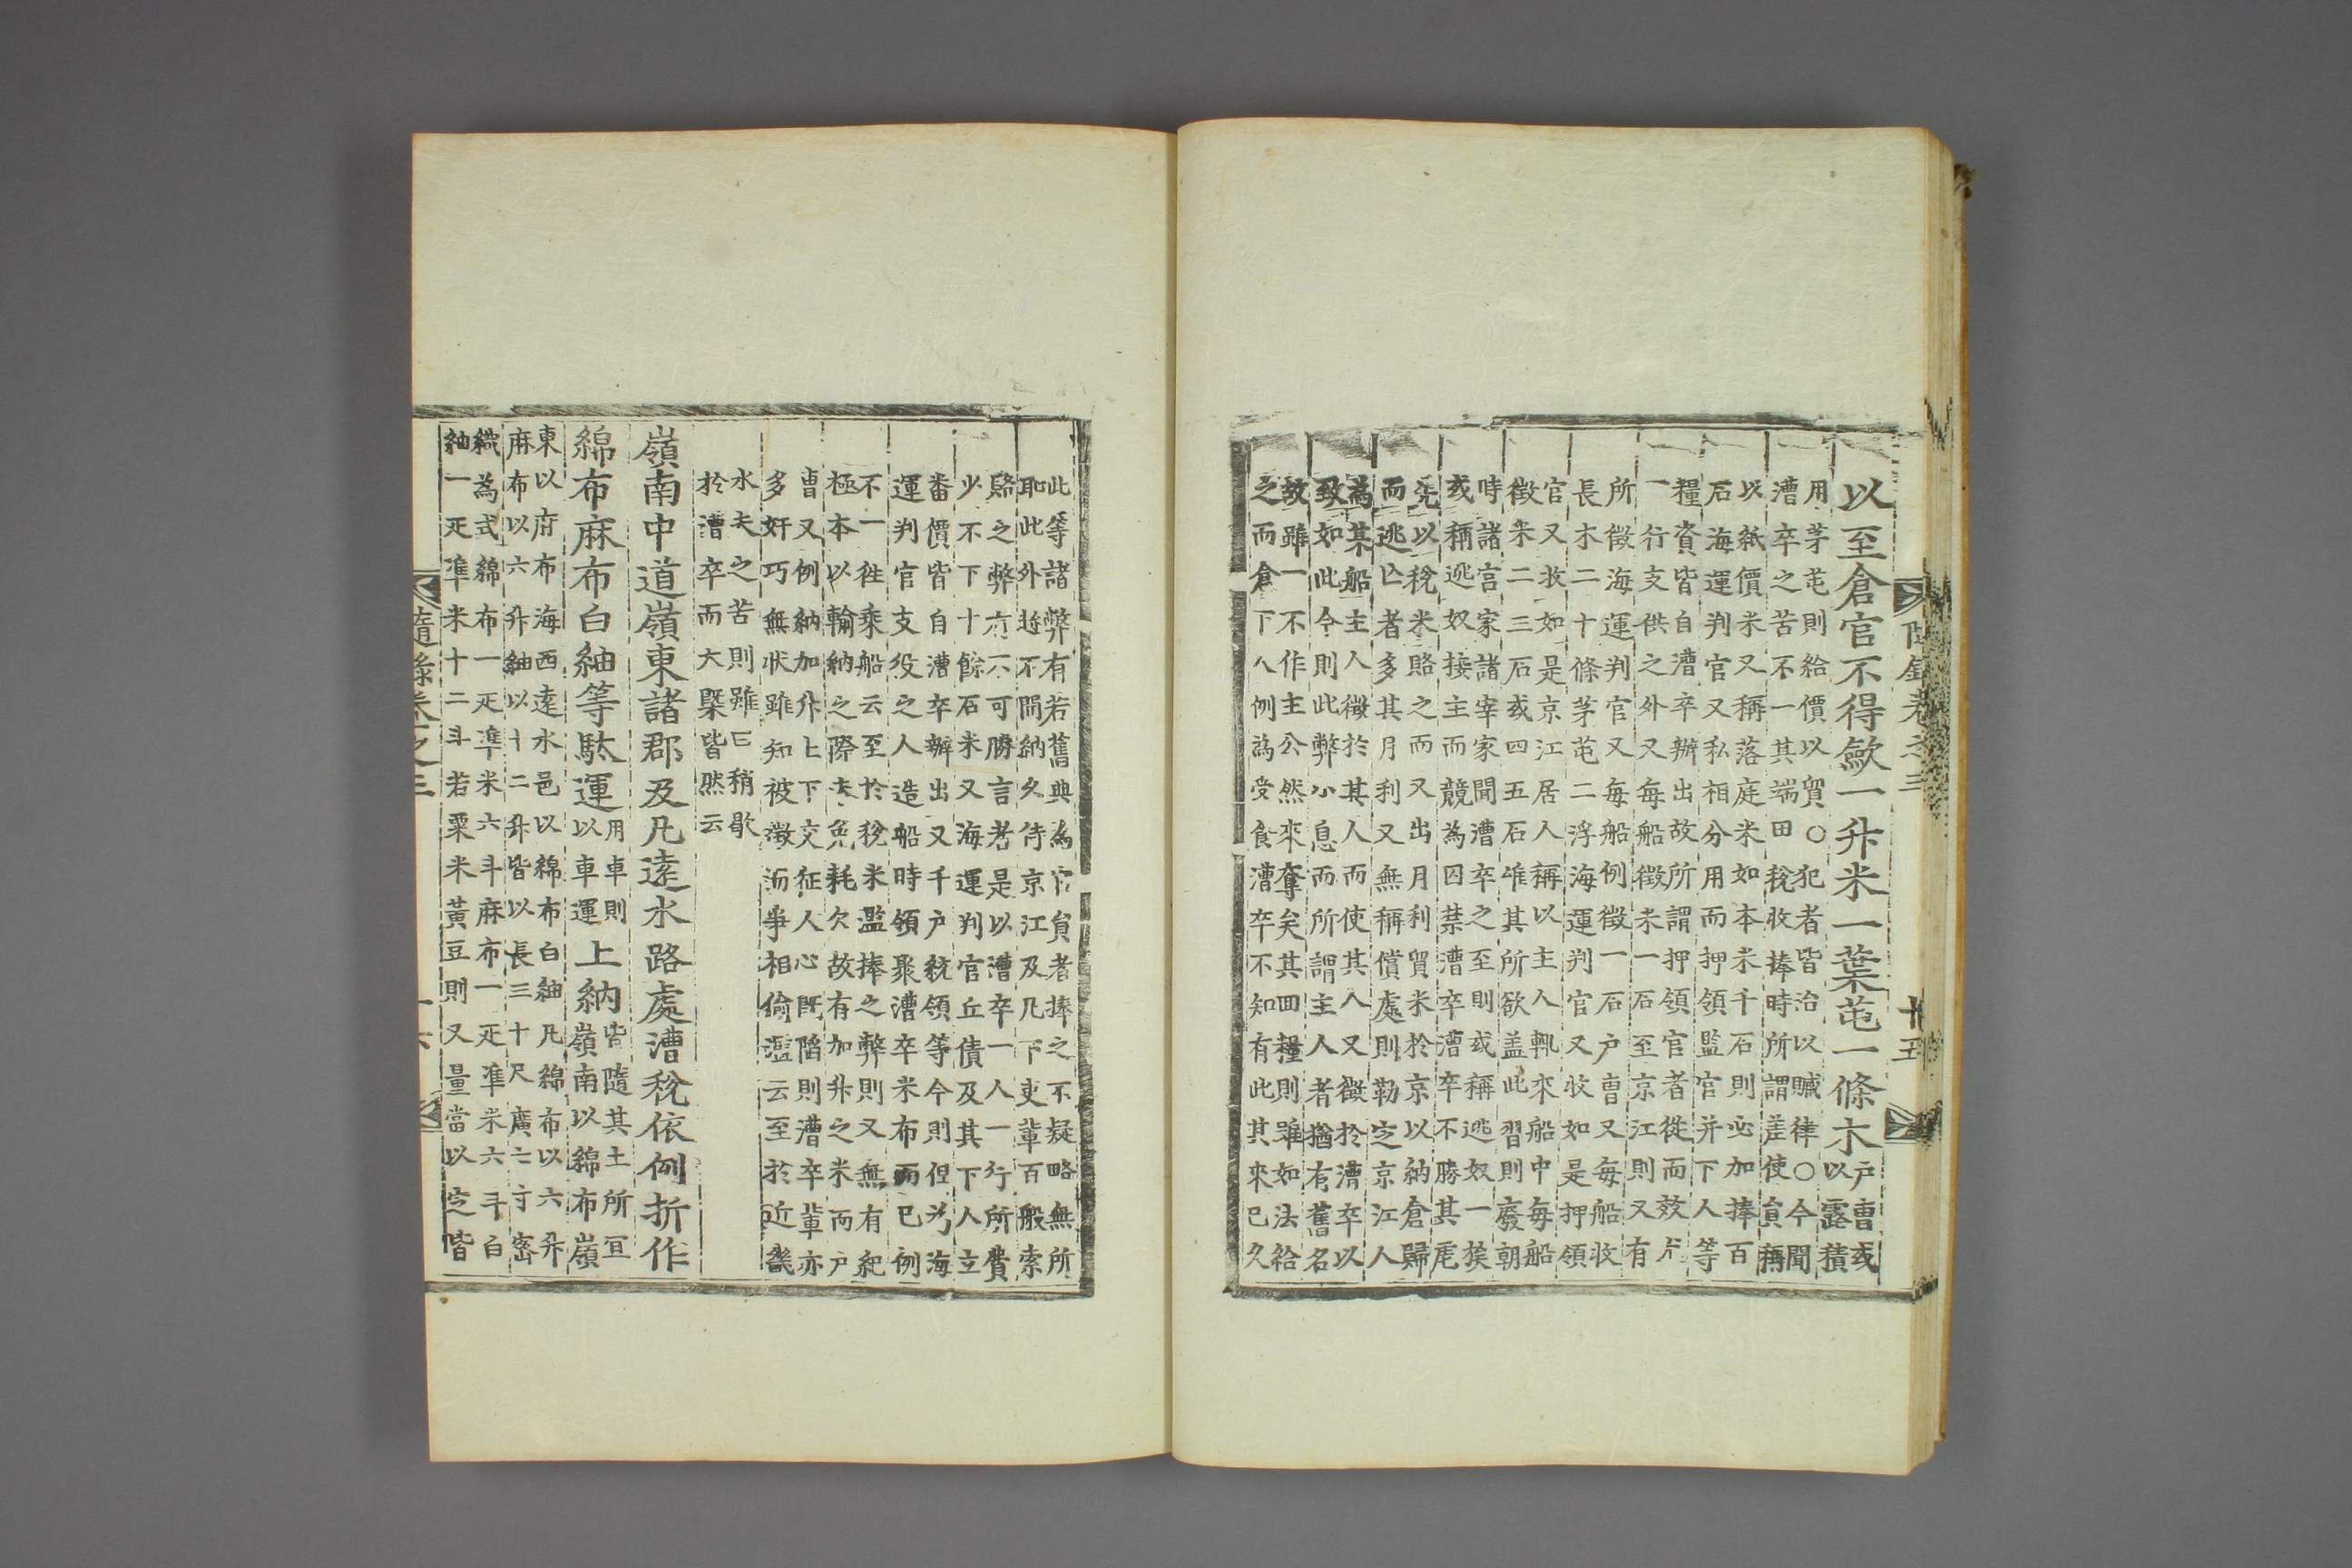 隨錄卷之三 十五
以至倉官不得斂一升米一葉芚一條木
戶曹或
以露積
用茅芚則給價以貿○犯者皆治以贓律○今聞
漕卒之苦不一其端田稅收捧時所謂差使員稱
以紙價米又稱落庭米如本米千石則必加捧百
石海運判官又私相分用而押領監官并下人等
糧資皆自漕卒辦出故所謂押領官者從而效尤
一行支供之外又每船徵米一石至京江則又有
所徵海運判官又每船例徵一石戶曹又每船收
長木二十條茅芚二浮海運判官又收如是押領
官又收如是京江居人稱以主人輒來船中每船
徵米二三石或四五石唯其所欲盖此習則廢朝
時諸宮家諸宰家聞漕卒之至則或稱逃奴一族
或稱逃奴接主而競為囚禁漕卒漕卒不勝其虐
先以稅米賂之而又出月利貿米於京以納倉歸
而逃亡者多其月利又無稱償處則勒定京江人
為某船主人徵於其人而使其人又徵於漕卒以
致如此今則此弊小息而所謂主人者猶有舊名
故雖一不作主公然來奪矣其回糧則雖如法給
之而倉下人例為受食漕卒不知有此其來已久
此等諸弊有若舊典為官員者捧之不疑略無所
耻此外趁不開納久待京江及凡下吏輩百般索
賂之弊有不可勝言者是以漕卒一人一行所費
少不下十餘石米又海運判官丘債及其下人立
番價皆自漕卒辦出又千戶統領等今則但為海
運判官支役之人造船時領聚漕卒米布而已例
不一徃乘船云至於稅米濫捧之弊則又無有紀
極本以輸納之際未免耗欠故有加升之米而戶
曹又例納加升上下交征人心旣陷則漕卒輩亦
多奸巧無狀雖知被徵而爭相偷濫云至於近畿
水夫之苦則雖曰稍歇
於漕卒而大槩皆然云
嶺南中道嶺東諸郡及凡逺水路處漕稅依例折作
綿布麻布白紬等駄運
用車則
以車運
上納
皆隨其土所宜
嶺南以綿布嶺
東以麻布海西逺水邑以綿布白紬凡綿布以六升
麻布以六升紬以十二升皆以長三十尺廣七寸密
織為式綿布一疋準米六斗麻布一疋準米六斗白
紬一疋準米十二斗若粟米黃豆則又量當以定皆
隨錄卷之三 十六